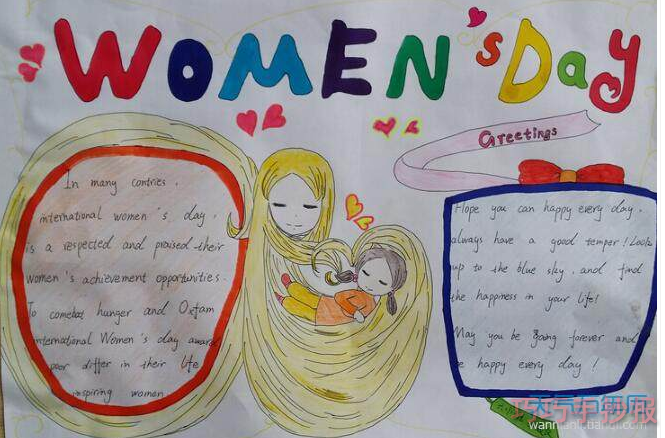 WOMEN'S DAY
Greetings
In many contries,
international women's day,
is a respected and praised their
women's achievement opportunities.
To combat hunger and Oxfam
international Women's day award
poor differ in their life
inspiring women
Hope you can happy every day,
always have a good temper! Look
up to the blue sky, and find
the happiness in your life!
May you be going forever and
be happy every day!